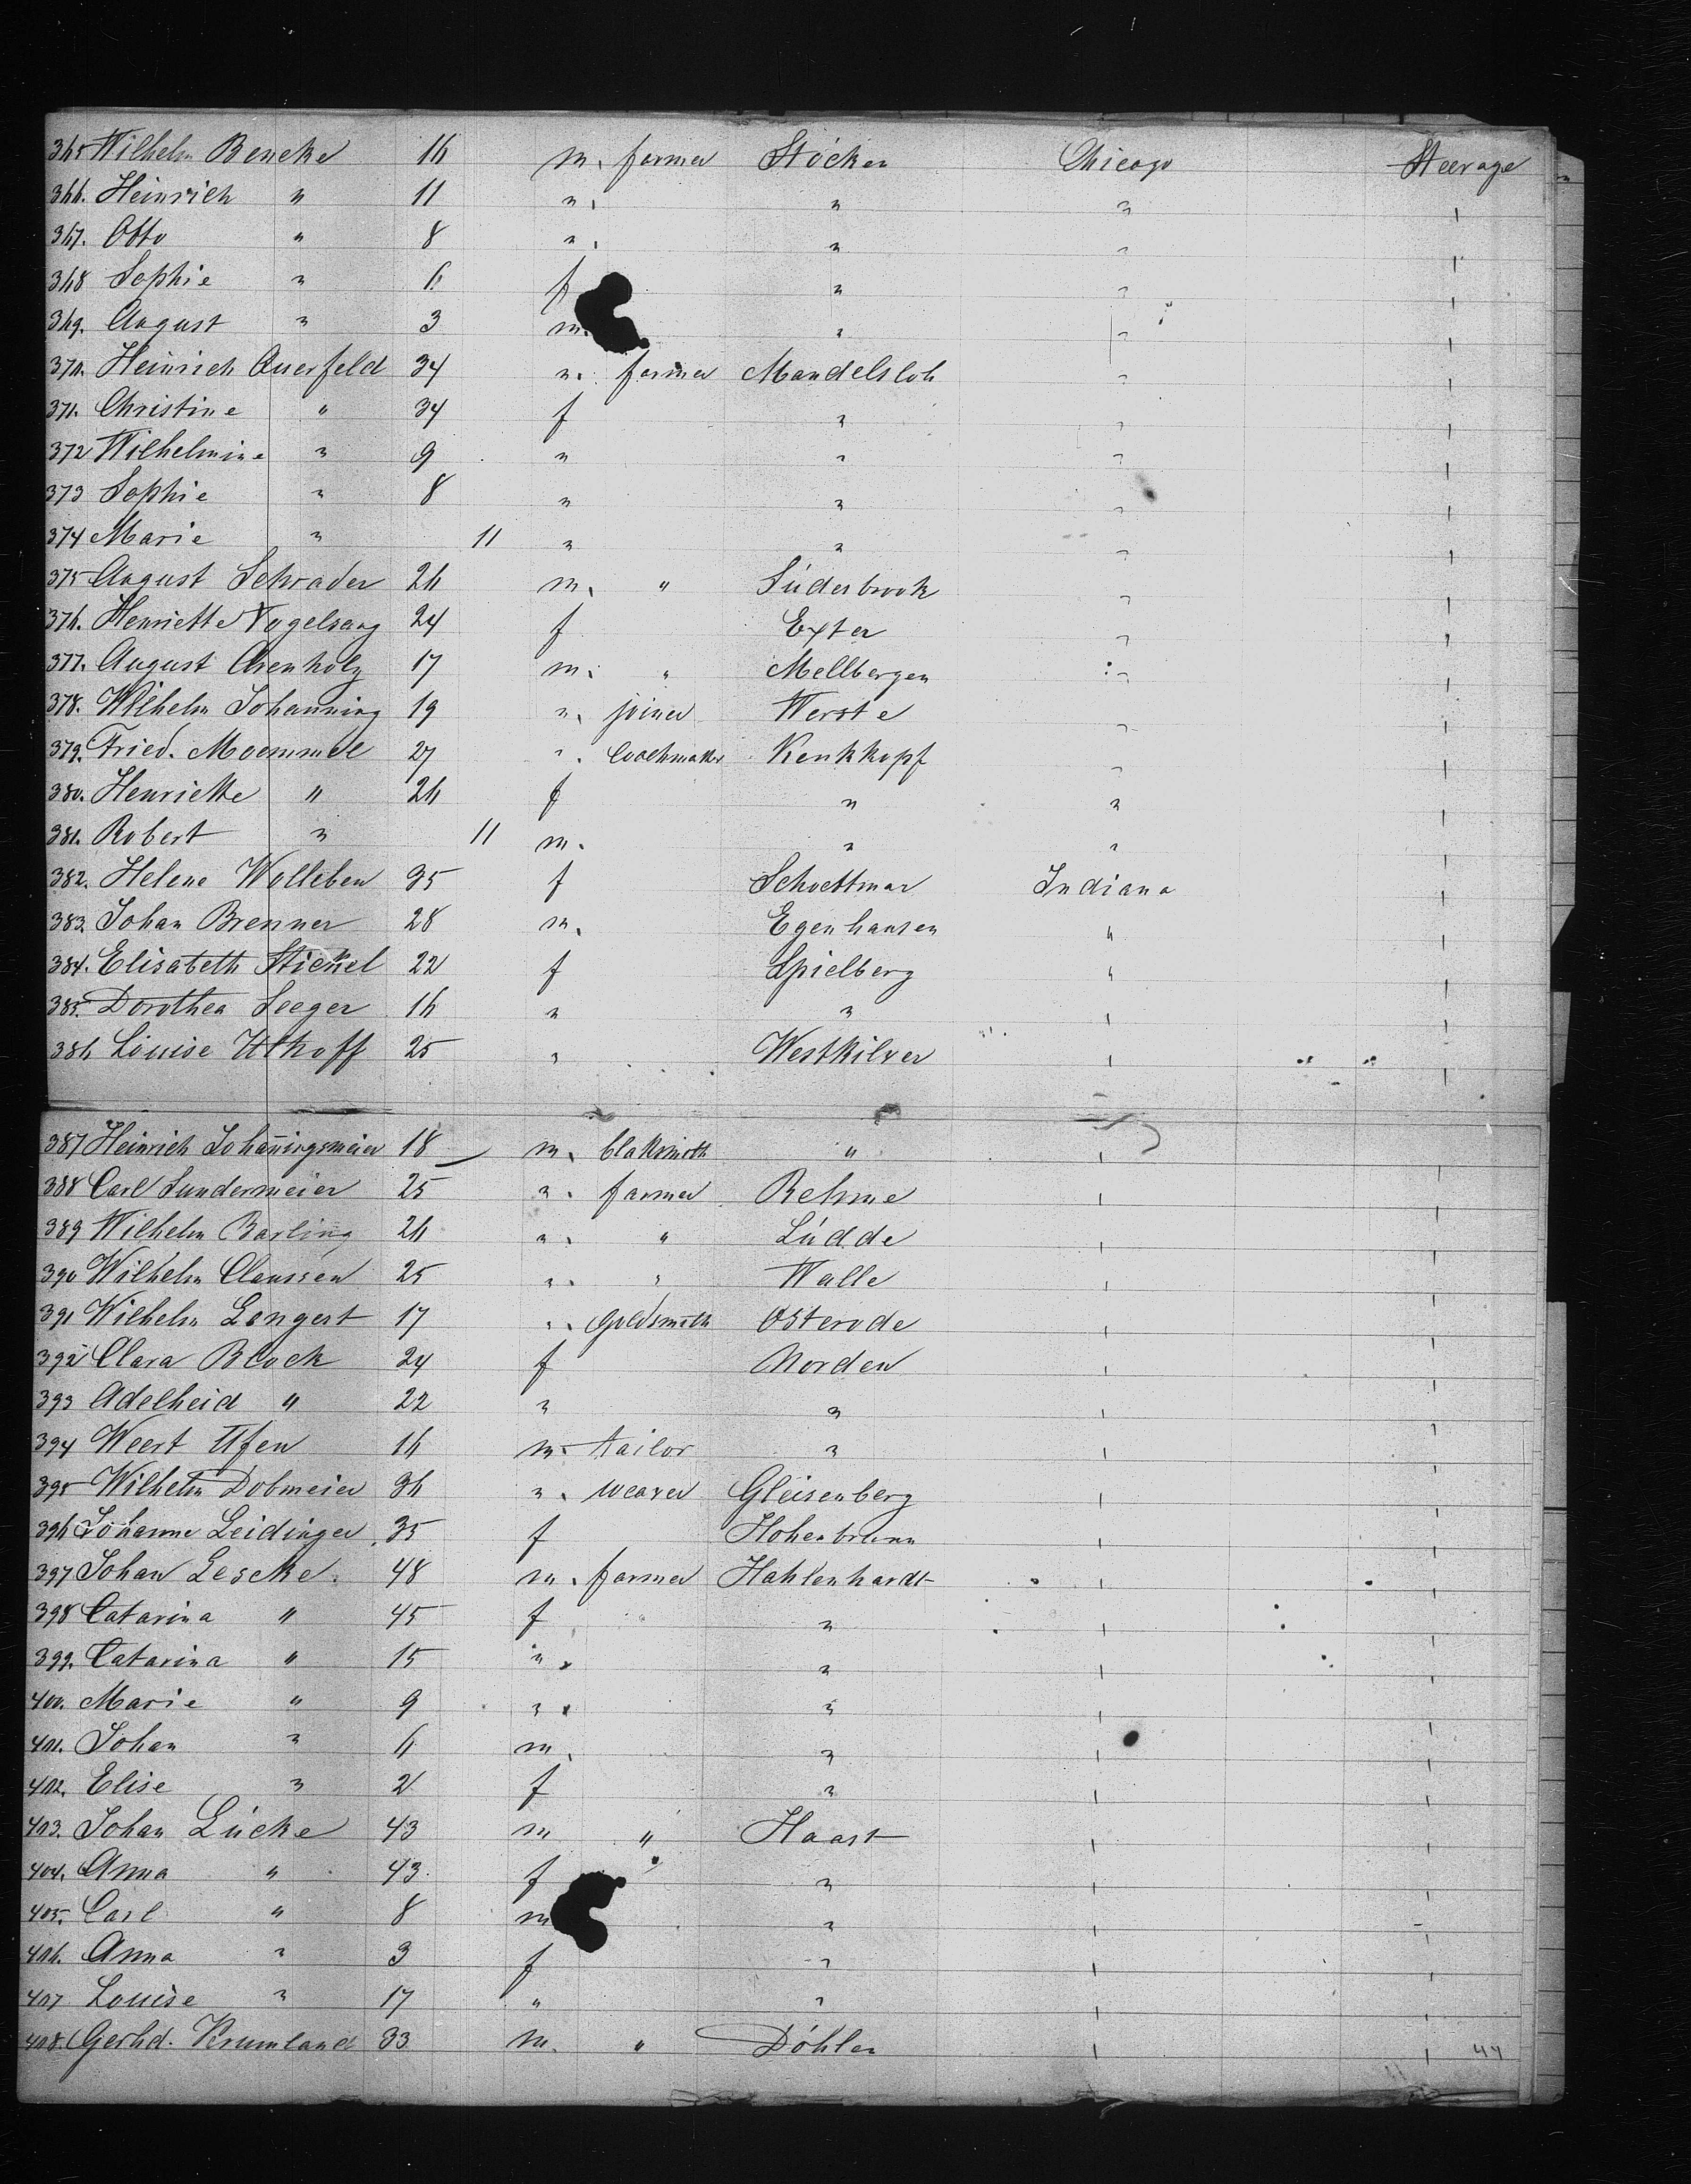 365 Wilhelm Bencke 16 m. farmer Stöcken Chicago Steerage
366. Heinrich " 11 " . " " "
367. Otto " 8 " . " " "
368 Sophie " 6 f " " "
369. August " 3 m. " " "
370. Heinrich Querfeld 34 " . farmer Mandelsloh " "
371. Christine " 34 f " " "
372 Wilhelmine " 9 " " " "
373 Sophie " 8 " " " "
374 Marie " 11 " " " "
375 August Schrader 26 m. " Süderbrook " "
376. Henriette Vogelsang 24 f Exter " "
377. August Arenholz 17 m. " Mellbergen " "
378. Wilhelm Johanning 19 " . joiner Werste " "
379. Fried. Moemmel 27 " . Coachmaker Kenkkopf " "
380. Henriette " 26 f " " "
381. Robert " 11 m. " " "
382. Helene Wolleben 35 f Schoettmar Indiana "
383. Johan Brenner 28 m. Egenhausen " "
384. Elisabeth Stickel 22 f Spielberg " "
385. Dorothea Seeger 16 " " " "
386 Louise Uthoff 25 " Westkilver " "
387 Heinrich Johaningsmeier 18 m. blaksmith " " "
388 Carl Sundermeier 25 " . farmer Rehme " "
389 Wilhelm Barling 26 " . " Lüdde " "
390 Wilhelm Claussen 25 " . " Walle " "
391 Wilhelm Longert 17 " . Goldsmith Osterode " "
392 Clara Block 24 f Norden " "
393 Adelheid " 22 " " " "
394 Weert Ufen 16 m. tailor " " "
395 Wilhelm Dobmeier 36 " . weaver Gleisenberg " "
396 Johanne Leidinger 35 f Hohenbrunn " "
397 Johan Lescke 48 m. farmer Hahlenhardt " "
398 Catarina " 45 f " " "
399. Catarina " 15 " " " "
400. Marie " 9 " " " "
401. Johan " 6 m. " " "
402. Elise " 2 f " " "
403. Johan Lücke 43 m " Haast " "
404. Anna " 43 f " " "
405. Carl " 8 m " " "
406. Anna " 3 f " " "
407 Louise " 17 " " " "
408. Gerhd. Krumland 33 m. " Döhlen " "
44